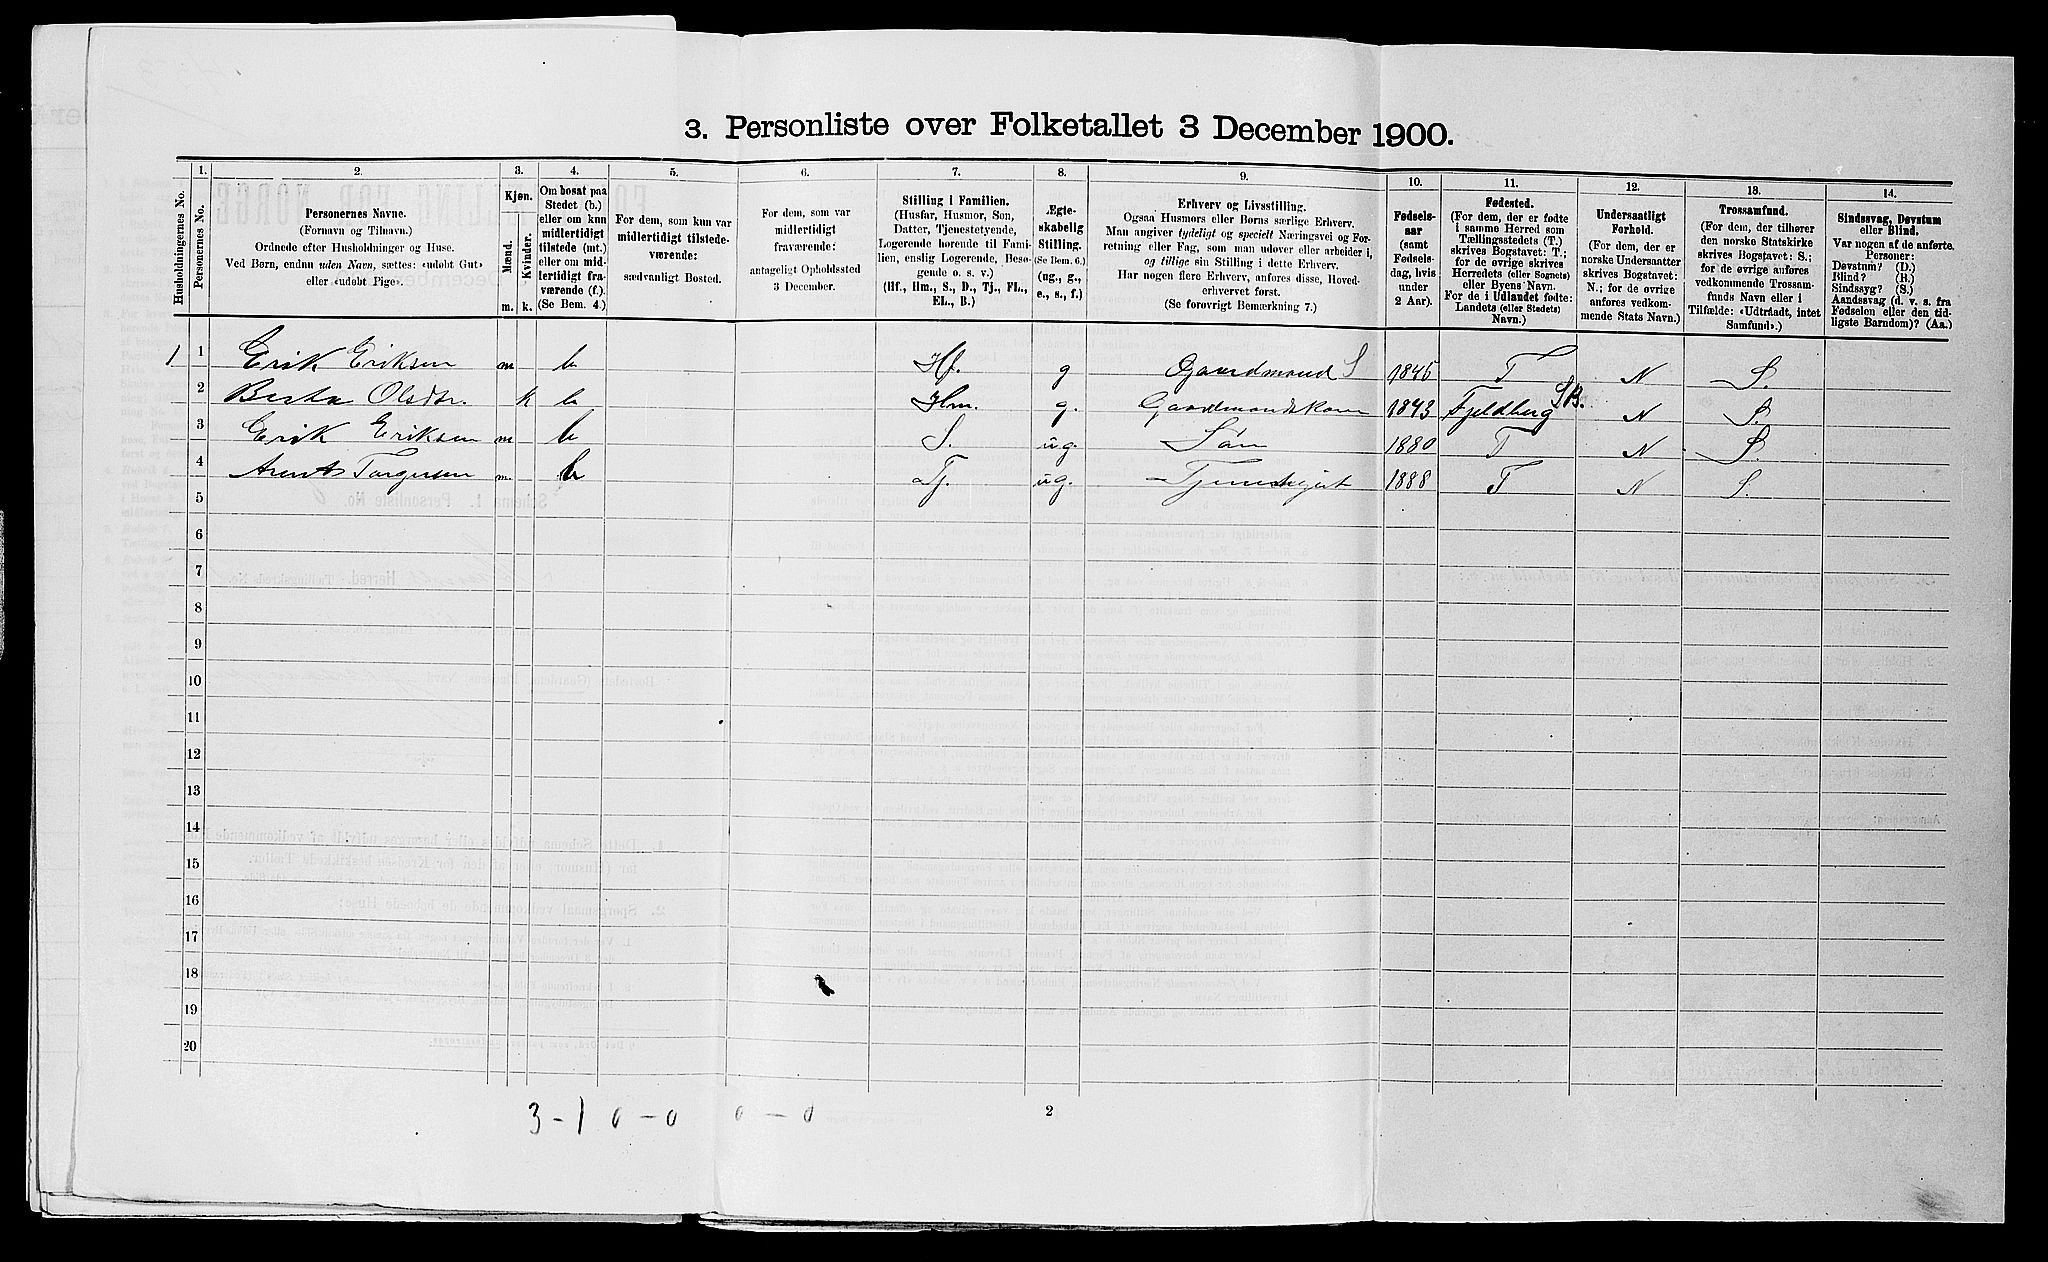 3. Personliste over Folketallet 3 December 1900.
Husholdningernes No.
1.
Personernes No.
2.
Personernes Navne.
(Fornavn og Tilnavn.)
Ordnede efter Husholdninger og Huse.
Ved Børn, endnu uden Navn, sættes: «udøbt Gut»
eller «udøbt Pige».
3.
Kjøn.
Mænd.
Kvinder.
m. k.
4.
Om bosat paa
Stedet (b.)
eller om kun
midlertidigt
tilstede (mt.)
eller om mid-
lertidigt fra-
værende (f.).
(Se Bem. 4.)
5.
For dem, som kun var
midlertidigt tilstede-
værende:
sædvanligt Bosted.
6.
For dem, som var
midlertidigt
fraværende:
antageligt Opholdssted
3 December.
7.
Stilling i Familien.
(Husfar, Husmor, Søn,
Datter, Tjenestetyende,
Logerende hørende til Fami-
lien, enslig Logerende, Besø-
gende o. s. v.)
(Hf., Hm., S., D., Tj., FL.,
EL., B.)
8.
Ægte-
skabelig
Stilling.
(Se Bem. 6.)
(ug., g.,
e., s., f.)
9.
Erhverv og Livsstilling.
Ogsaa Husmors eller Børns særlige Erhverv.
Man angiver tydeligt og specielt Næringsvei og For-
retning eller Fag, som man udover eller arbeider i,
og tillige sin Stilling i dette Erhverv.
Har nogen flere Erhverv, anføres disse, Hoved-
erhvervet først.
(Se forøvrigt Bemærkning 7.)
10.
Fødsels-
aar
(samt
Fødsels-
dag, hvis
under
2 Aar).
11.
Fødested.
(For dem, der er fødte
i samme Herred som
Tællingsstedets (T.)
skrives Bogstavet: T.;
for de øvrige skrives
Herredets (eller Sognets)
eller Byens Navn.
For de i Udlandet fødte:
Landets (eller Stedets)
Navn.)
12.
Undersaatligt
Forhold.
(For dem, der er
norske Undersaatter
skrives Bogstavet:
N.; for de øvrige
anføres vedkom-
mende Stats Navn.)
13.
Trossamfund.
(For dem, der tilhører
den norske Statskirke
skrives Bogstavet: S.;
for de øvrige anføres
vedkommende Trossam-
funds Navn eller i
Tilfælde: «Udtraadt, intet
Samfund».)
14.
Sindssvag, Døvstum
eller Blind.
Var nogen af de anførte
Personer:
Døvstum? (D.)
Blind? (B.)
Sindssyg? (S.)
Aandssvag (d. v. s. fra
Fødselen eller den tid-
ligste Barndom)? (Aa.)
1 1 Erik Eriksen m b Hf. g Gaardmand S 1846 T N S.
2 Berta Olsdtr. k b Hm. g. Gaardmandskone 1843 Fjeldberg S.B. N S.
3 Erik Eriksen m b S. ug. Søn 1880 T N S.
4 Arent Torgersen m. b Tj. ug. Tjenestegut 1888 T N S.
5
6
7
8
9
10
11
12
13
14
15
16
17
18
19
20
3 - 1 0 - 0 0 - 0
2